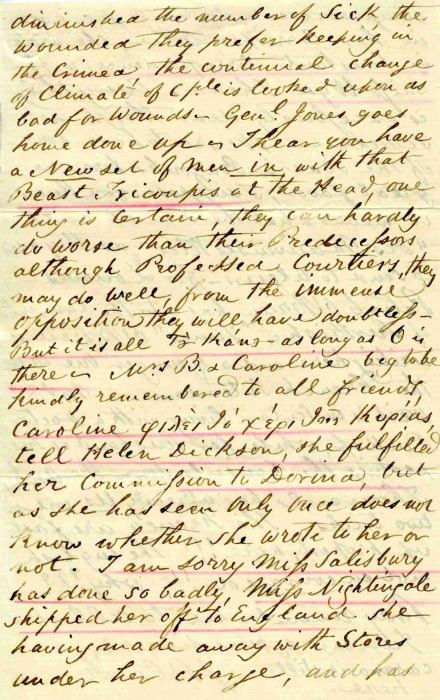 diminished the number of Sick, the
wounded they prefer keeping in
the Crimea, the continual change
of Climate of C/ple is looked upon as
bad for Wounds. Genl. Jones goes
home done up. I hear you have
a New set of Men in, with that
Beast Tricoupis at the Head, one
thing is Certain, they can hardly
do worse than their Predecessors
although Professed Courtiers, they
may do well, from the immense
opposition they will, have doubtless -
But it is all as long as O is
there. Mrs B. & Caroline beg to be
kindly remembered to all friends,
Caroline φιλεὶ τό χέρι της Κυρίας,
tell Helen Dickson, she fulfilled
her Commission to Dorina, but
as she has seen only once does not
know whether she wrote to her or
not. I am sorry Miss Salisbury
has done so badly, Miss Nightingale
shipped her off to England she
having made away with Stores
under her charge, and has